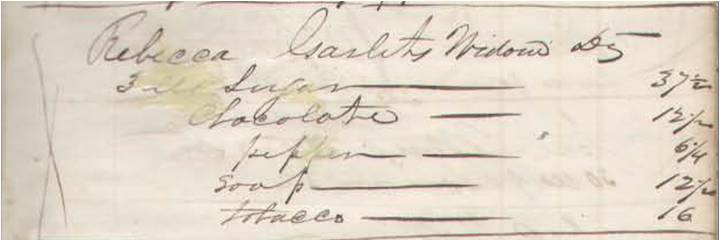 Rebecca Garlits Widow Dr
3 lb Sugar 37 1/2
Chocolate 12 1/2
pepper 6 1/4
Soap 12 1/2
tobacco 16